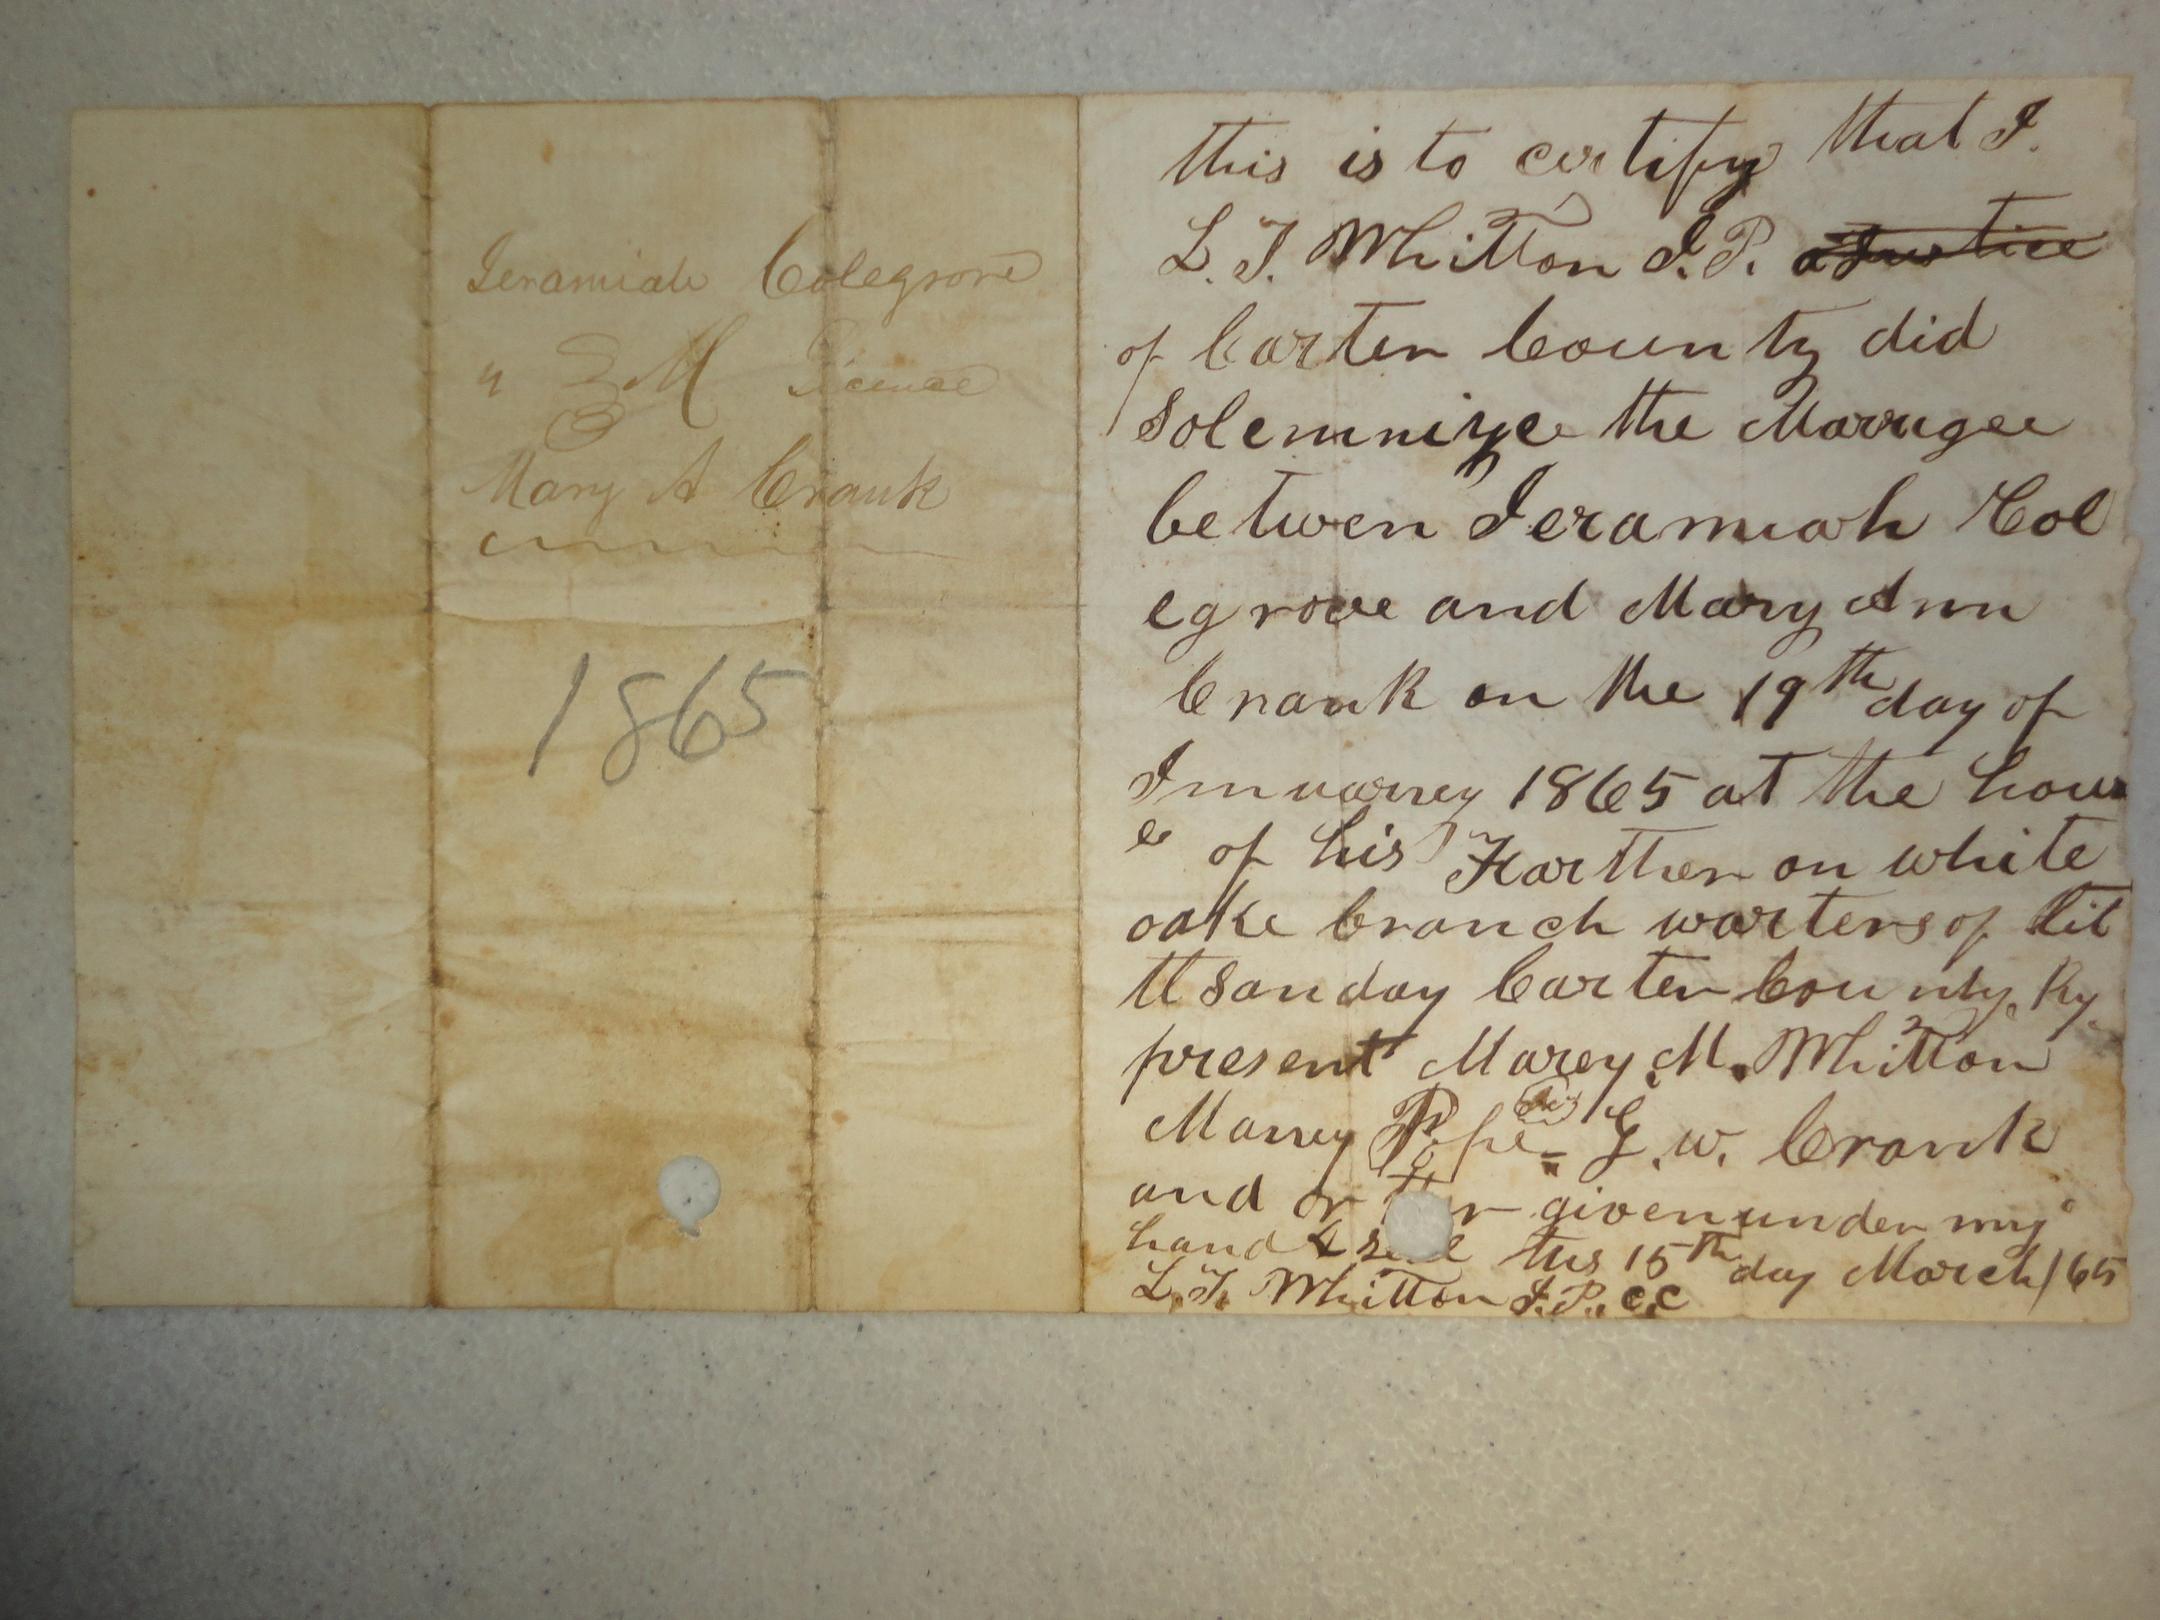 Jeramiah Colegrove
" } M License
Mary A Crank
1865
this is to certify that I.
L. T. Whitton J. P. a Justice
of Carter County did
Solemnize the Marrigee
betwen Jeramiah Col
egrove and Mary Ann
Crank on the 19th day of
Jmuarey 1865 at the hous
e of his Farther on white
oake branch warters of lit
tl sanday Carter County, Ky.
present Marey. M. Whitton
Marrey Pope = G. W. Crank
and or given under my
hand & this 15th day March 65
L. T. Whitton J. P. C. C